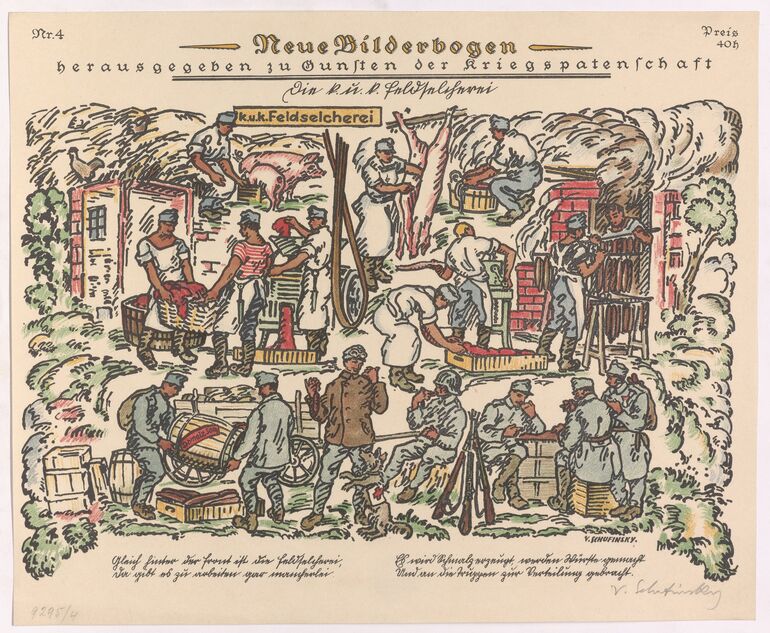 Nr. 4
Neue Bilderbogen
Preis
40 h
herausgegeben zu Gunsten der Kriegspatenschaft
Die k. u. k. Feldselcherei
k.u.k. Feldselcherei
V. SCHUFINSKY.
Gleich hinter der Front ist die Feldselcherei,
Da gibt es zu arbeiten gar mancherlei
Es wird Schmalz erzeugt, werden Würste gemacht
Und an die Truppen zur Verteilung gebracht.
V. Schufinsky
9295/4